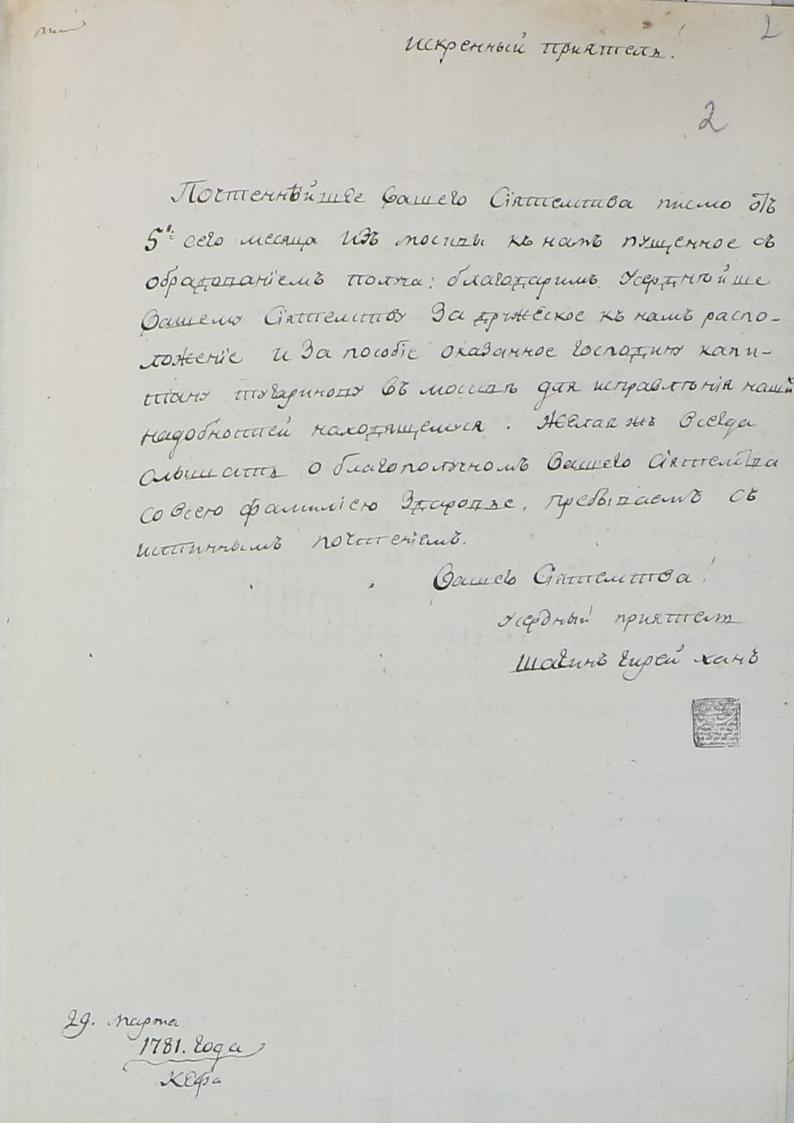 2
Искренный приятель!
2
Почтеннѣйшее Вашего Сіятелства писмо отъ
5го: сего месяца изъ москвы къ намъ пущенное съ
обрадованіемъ получа; благодаримъ Усерднѣйше
Вашему Сіятелству За дружеское къ намъ распо-
ложеніе и За пособіе оказанное господину капи-
тану тугаринову въ москвѣ для исправлѣнія нашей
надобностей находящемуся. Желая жъ Всегда
слышать о благополучномъ Вашего Сіятелства
со Всею фамиліею Здаровье, пребываемъ съ
истиннымъ почтеніемъ.
Вашего Сіятелства!
Усердный приятель
Шагинъ Гирей ханъ
29. марта
1781. года
Кефа